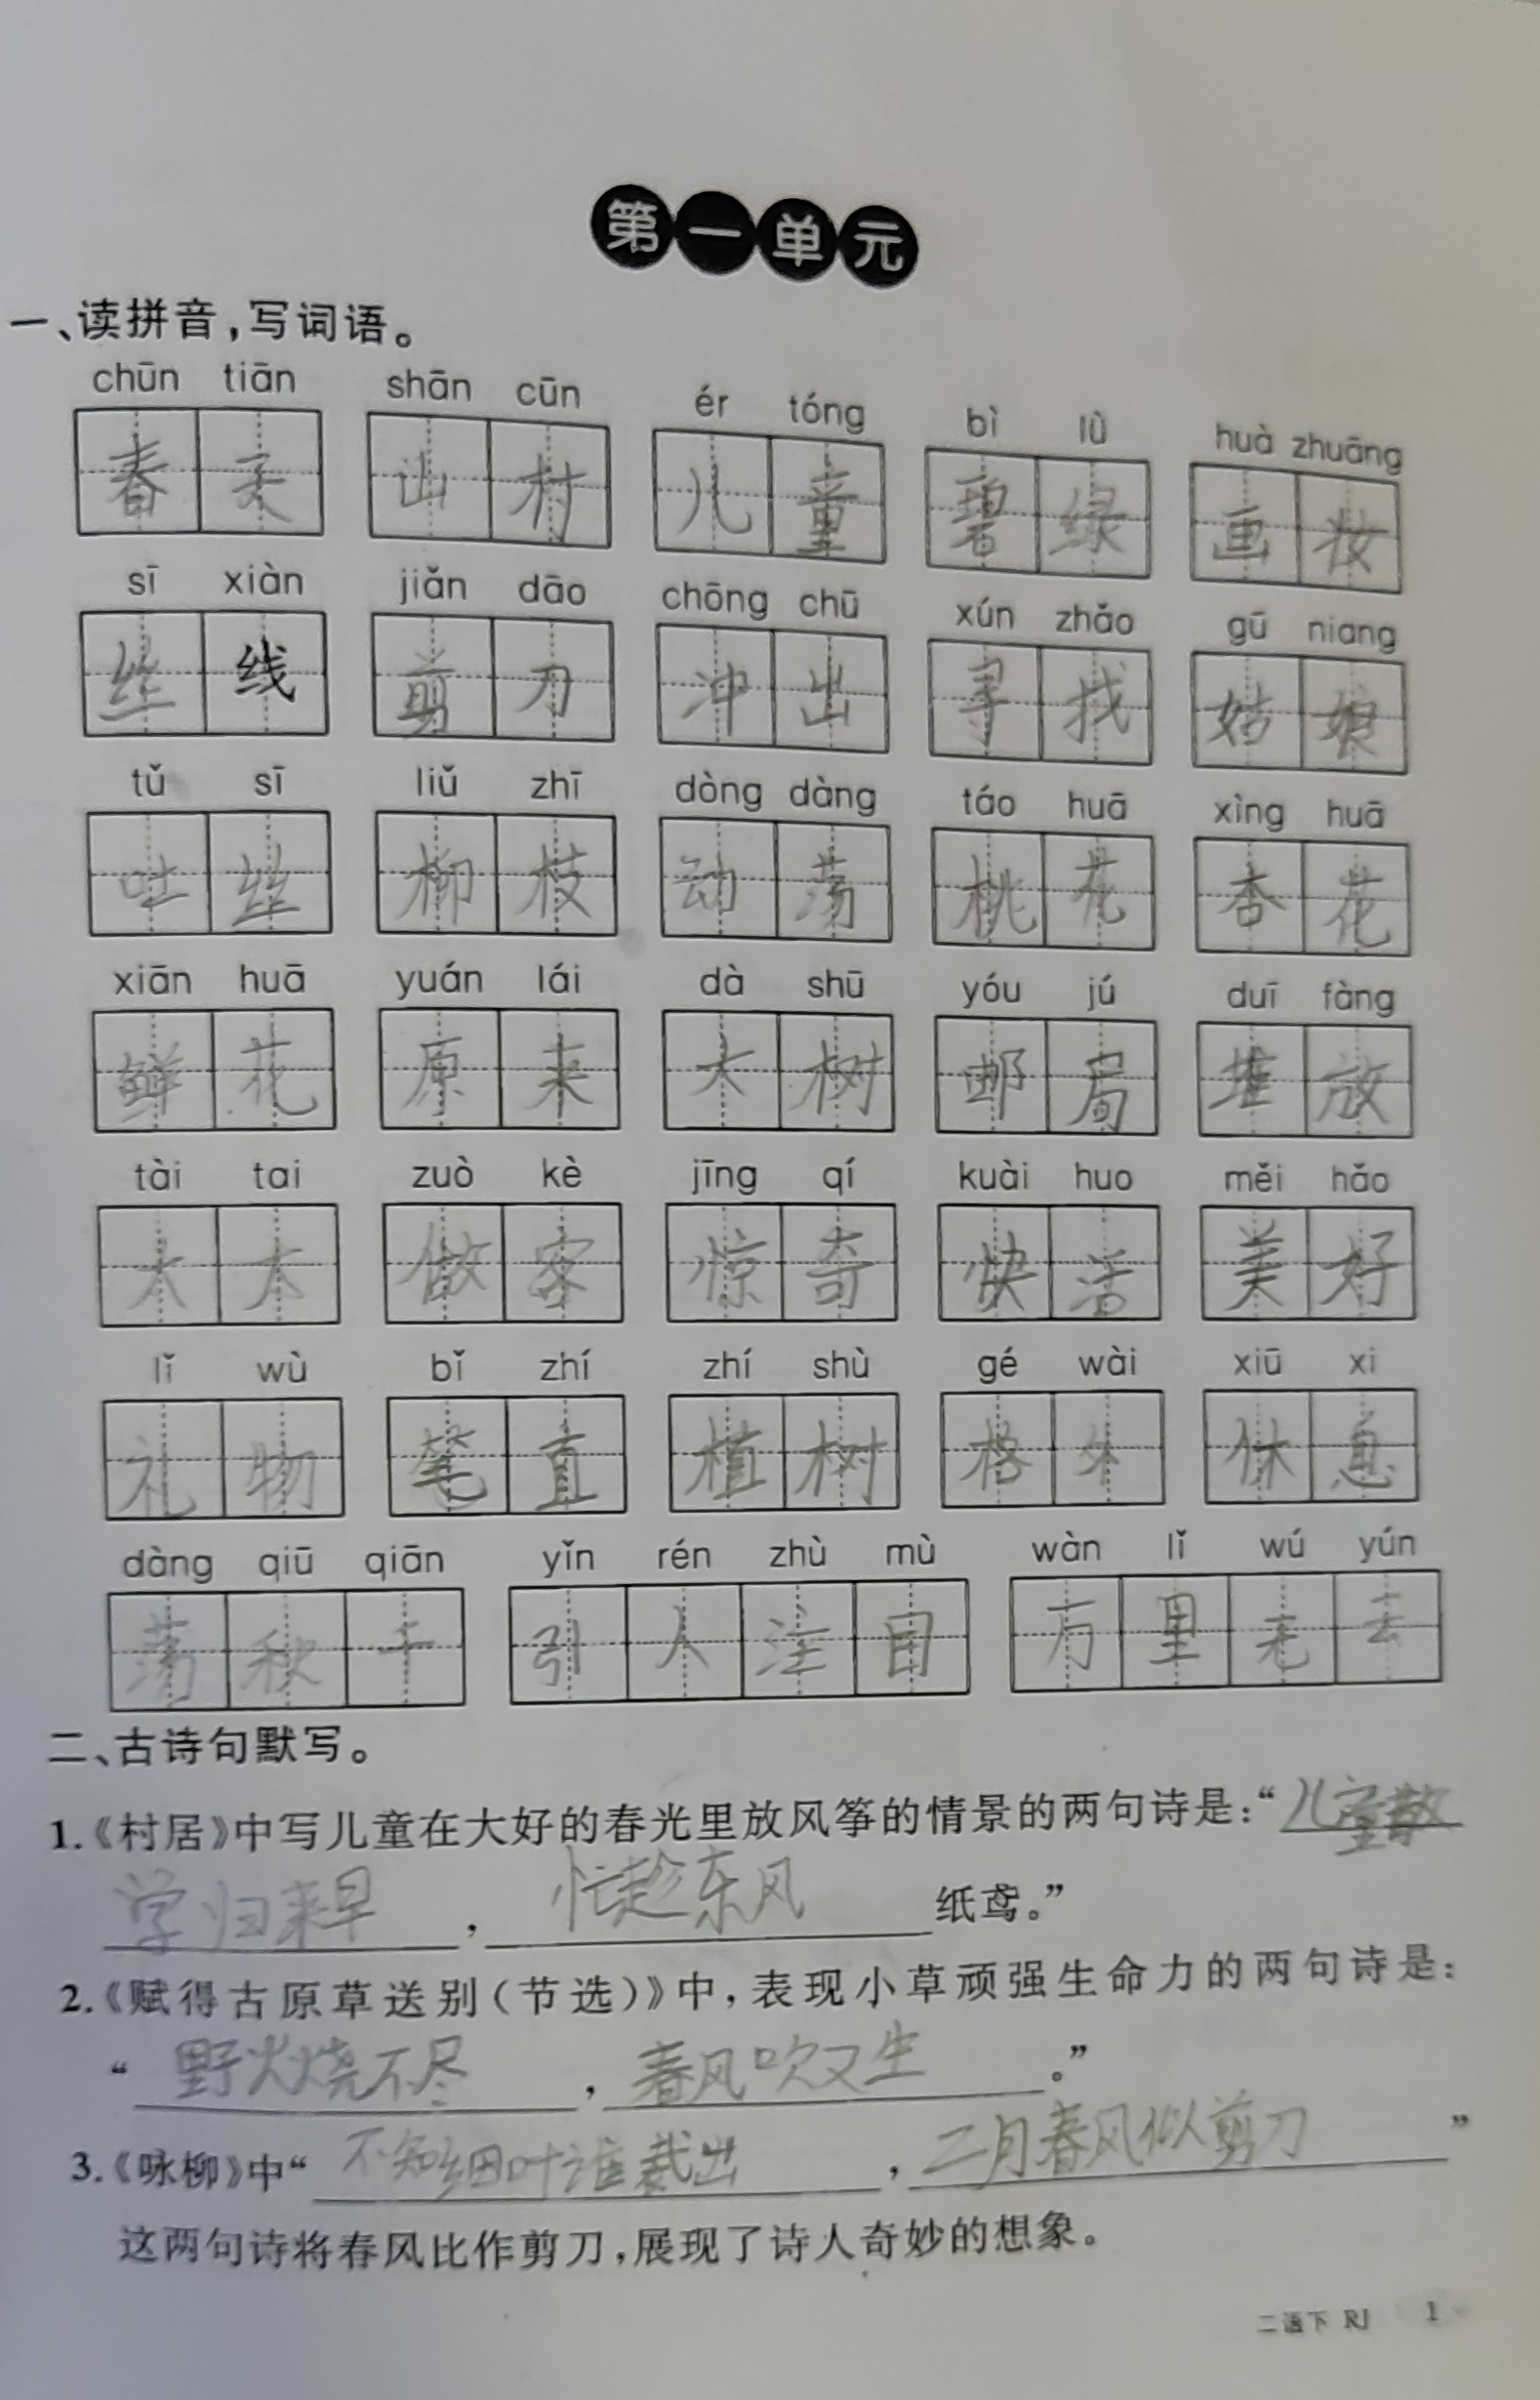 第一单元
一、读拼音，写词语。
chūn tiān shān cūn ér tóng bì lǜ huà zhuāng
春天 山村 儿童 碧绿 画妆
sī xiàn jiǎn dāo chōng chū xún zhǎo gū niang
丝线 剪刀 冲出 寻找 姑娘
tǔ sī liǔ zhī dòng dàng táo huā xìng huā
吐丝 柳枝 动荡 桃花 杏花
xiān huā yuán lái dà shū yóu jú duī fàng
鲜花 原来 大树 邮局 堆放
tài tai zuò kè jīng qí kuài huo měi hǎo
太太 做客 惊奇 快活 美好
lǐ wù bǐ zhí zhí shù gé wài xiū xi
礼物 笔直 植树 格外 休息
dàng qiū qiān yǐn rén zhù mù wàn lǐ wú yún
荡秋千 引人注目 万里无云
二、古诗句默写。
1.《村居》中写儿童在大好的春光里放风筝的情景的两句诗是：“儿童散
学归来早，忙趁东风纸鸢。”
2.《赋得古原草送别（节选）》中，表现小草顽强生命力的两句诗是：
“野火烧不尽，春风吹又生。”
3.《咏柳》中“不知细叶谁裁出，二月春风似剪刀”
这两句诗将春风比作剪刀，展现了诗人奇妙的想象。
二语下 RJ 1